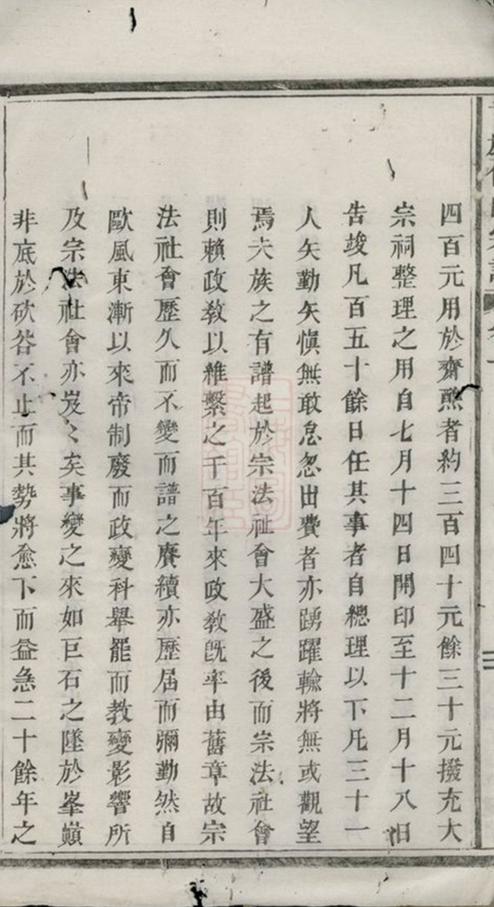 四百元用於齋㷛者約三百四十元餘三十元撥充大
宗祠整理之用自七月十四日開印至十二月十八日
告竣凡百五十餘日任其事者自總理以下凡三十一
人矢勤矢慎無敢怠忽出費者亦踴躍輸將無或觀望
焉夫族之有譜起於宗法社會大盛之後而宗法社會
則賴政敎以維繫之千百年來政敎旣率由舊章故宗
法社會歷久而不變而譜之賡續亦歷屆而彌勤然自
歐風東漸以來帝制廢而政變科舉罷而敎變影響所
及宗法社會亦岌〻矣事變之來如巨石之墜於峯巔
非底於砍谷不止而其勢將愈下而益急二十餘年之